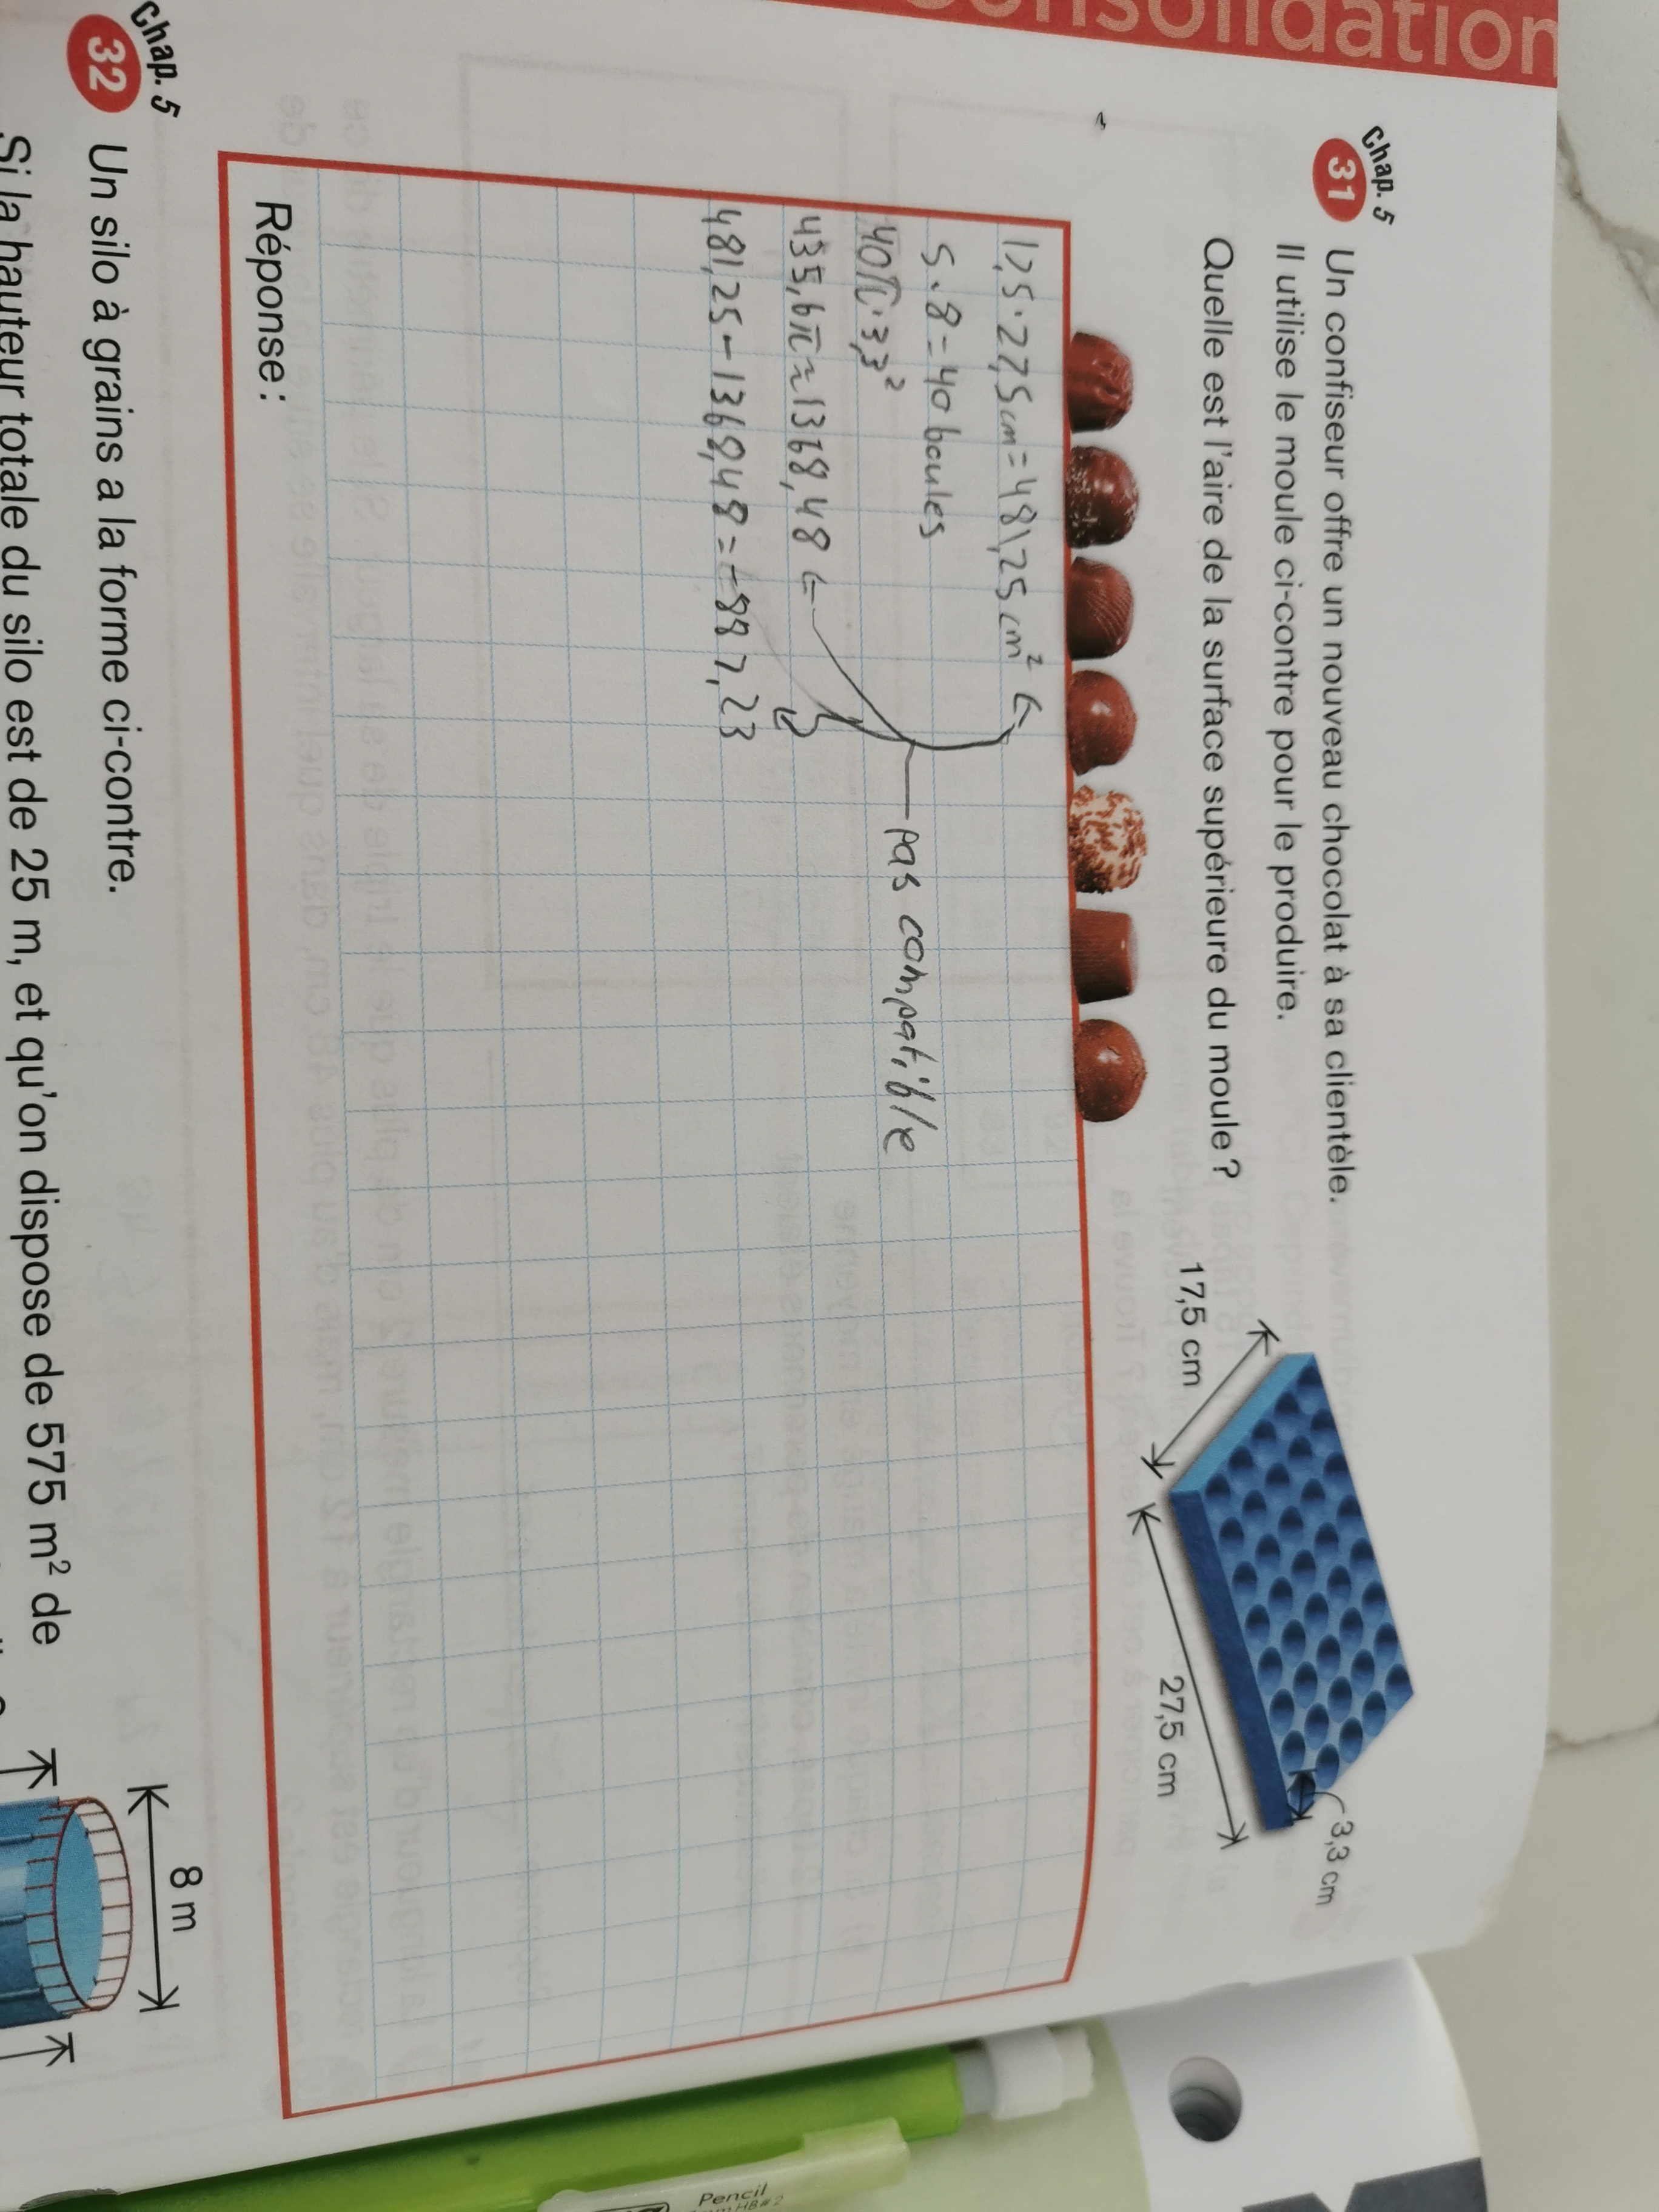 Consolidation
Chap. 5
31 Un confiseur offre un nouveau chocolat à sa clientèle.
Il utilise le moule ci-contre pour le produire.
Quelle est l'aire de la surface supérieure du moule ?
17,5 cm
27,5 cm
3,3 cm
17,5 · 27,5 cm = 481,25 cm²
5 · 8 = 40 boules
40π · 3,3²
435,6π ≈ 1368,48
pas compatible
481,25 - 1368,48 = -887,23
Réponse :
Chap. 5
32 Un silo à grains a la forme ci-contre.
Si la hauteur totale du silo est de 25 m, et qu'on dispose de 575 m² de
8 m
Pencil
HB#2